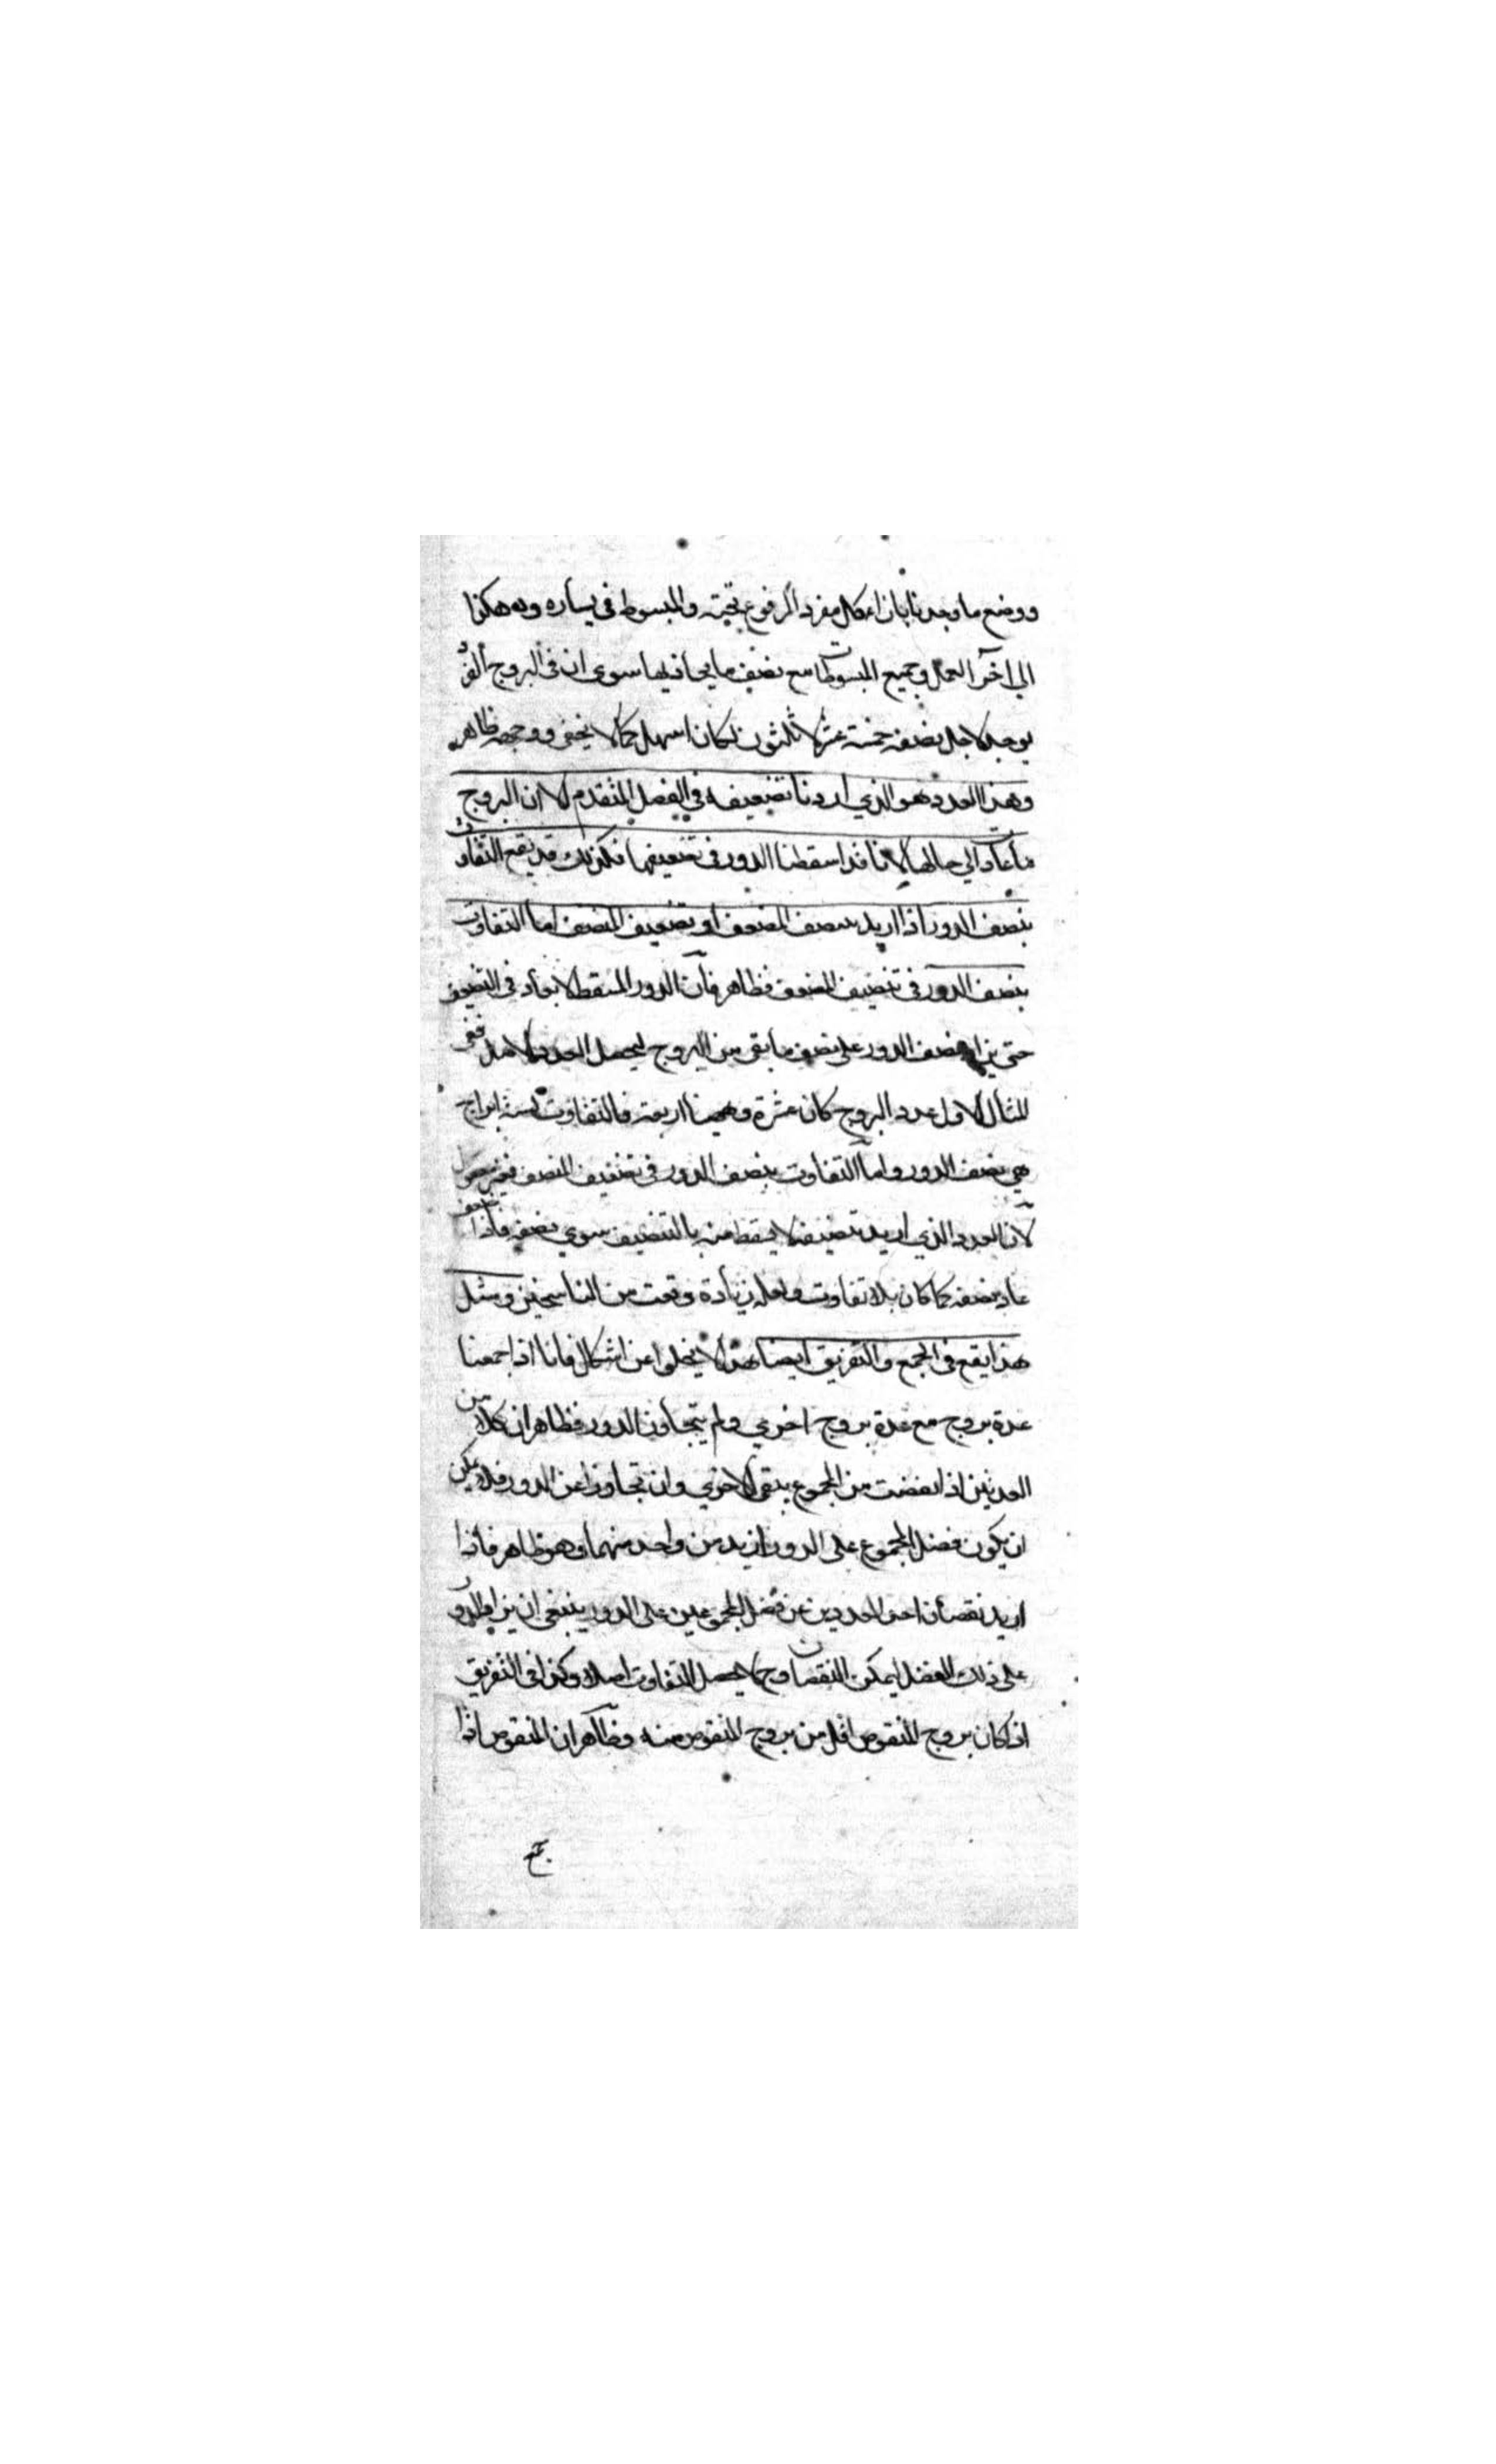 ووضع ما وجدنا بازاء كل مفرد المرفوع تحته والمبسوط في يساره وهكذا
الي اخر العمل وجميع المبسوطات مع نصف ما يحاذيها سوى ان في البروج الفرد
يوجد لاجل نصفه خمسة عشر لا ثلثون لكان اسهل كما لا يخفى ووجهه ظاهر
وهذا العدد هو الذي اردنا تضعيفه في الفصل المتقدم الا ان البروج
ما عاد الي حالها لانا قد اسقطنا الدور في تضعيفها فلذلك قد يقع التفاوت
بنصف الدور اذا اريد تنصيف المضعف او تضعيف المنصف اما التفاوت
بنصف الدور في تنصيف المضعف فظاهر فان الدور المسقط لا يعاد في التنصيف
حتى يزاد نصف الدور على نصف ما بقي من البروج ليحصل العدد الاصل ففي
المثال الاول عدد البروج كان عشرة وههنا اربعة فالتفاوت بستة ابراج
هي نصف الدور واما التفاوت بنصف الدور في تضعيف المنصف فغير
لان العدد الذي اريد تنصيفه لا يسقط منه بالتنصيف سوي نصفه فاذا ضعف
عاد نصفه كما كان بلا تفاوت ولعله زيادة وقعت من الناسخين ومثل
هذا يقع في الجمع والتفريق ايضا هذا لا يخلوا عن اشكال فانا اذا جمعنا
عدة بروج مع عدة بروج اخري ولم يتجاوز الدور فظاهر ان كلا من
العددين اذا نقصت من المجموع يبقى الاخري وان تجاوزا عن الدور فلا يمكن
ان يكون فضل المجموع على الدور ازيد من واحد منهما وهو ظاهر فاذا
اريد نقصان احد العددين عن فضل المجموعين على الدور ينبغي ان يزاد الدور
على ذلك الفضل ليمكن النقصان وح لا يحصل التفاوت اصلا وكذا في التفريق
اذا كان بروج المنقوص اقل من بروج المنقوص منه وظاهر ان المنقوص اذا